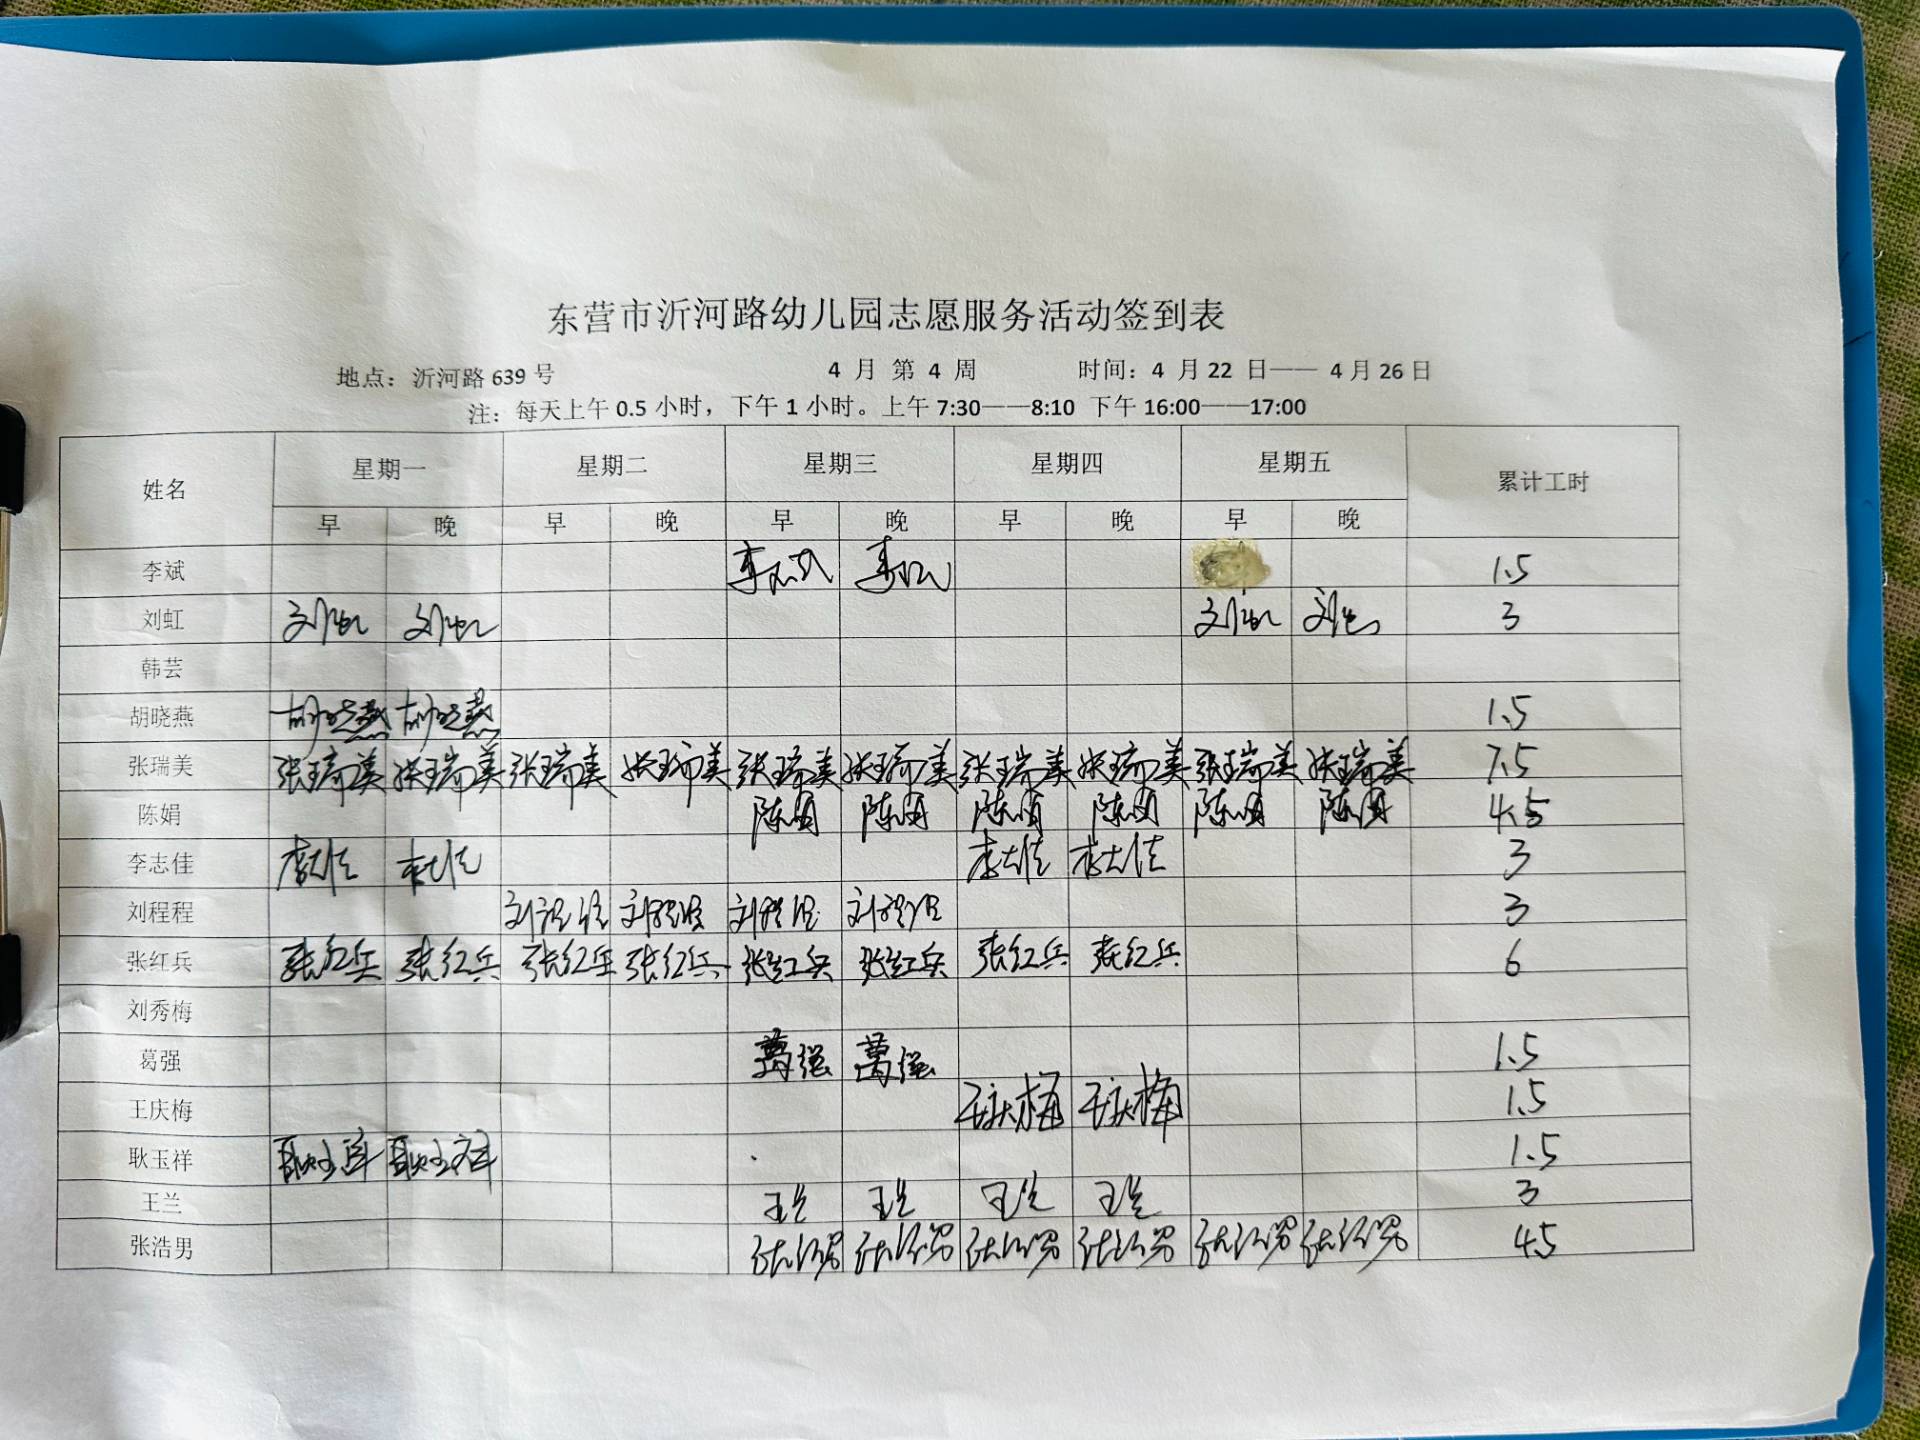 东营市沂河路幼儿园志愿服务活动签到表
地点：沂河路 639 号 4 月 第 4 周 时间：4 月 22 日—— 4 月 26 日
注：每天上午 0.5 小时，下午 1 小时。上午 7:30——8:10 下午 16:00——17:00
姓名 星期一 星期二 星期三 星期四 星期五 累计工时
早 晚 早 晚 早 晚 早 晚 早 晚
李斌 李斌 李斌 1.5
刘虹 刘虹 刘虹 刘虹 刘虹 3
韩芸
胡晓燕 胡晓燕 胡晓燕 1.5
张瑞美 张瑞美 张瑞美 张瑞美 张瑞美 张瑞美 张瑞美 张瑞美 张瑞美 张瑞美 张瑞美 7.5
陈娟 陈娟 陈娟 陈娟 陈娟 陈娟 陈娟 4.5
李志佳 李志佳 李志佳 李志佳 李志佳 3
刘程程 刘程程 刘程程 刘程程 刘程程 3
张红兵 张红兵 张红兵 张红兵 张红兵 张红兵 张红兵 张红兵 张红兵 6
刘秀梅
葛强 葛强 葛强 1.5
王庆梅 王庆梅 王庆梅 1.5
耿玉祥 耿玉祥 耿玉祥 1.5
王兰 王兰 王兰 王兰 王兰 3
张浩男 张浩男 张浩男 张浩男 张浩男 张浩男 张浩男 4.5